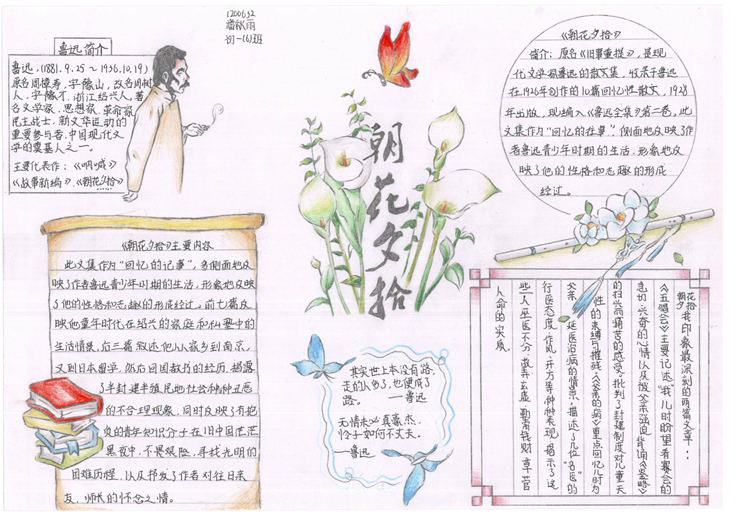 1200652
初一(6)班
鲁迅简介
鲁迅,(1881.9.25~1936.10.19)
原名周樟寿,字豫山,改名周树
人,字豫才,浙江绍兴人,著
名文学家、思想家、革命家
民主战士,新文化运动的
重要参与者,中国现代文
学的奠基人之一。
主要代表作:《呐喊》、
《故事新编》、《朝花夕拾》
朝花夕拾
《朝花夕拾》
简介:原名《旧事重提》,是现
代文学家鲁迅的散文集,收录于鲁迅
在1926年创作的10篇回忆性散文,1928
年出版,现编入《鲁迅全集》第二卷。此
文集作为“回忆的往事”,侧面地反映了作
者鲁迅青少年时期的生活,形象地反
映了他的性格和志趣的形成
经过。
《朝花夕拾》主要内容
此文集作为“回忆的记事”,多侧面地反
映了作者鲁迅青少年时期的生活,形象地反映
了他的性格和志趣的形成经过。前七篇反
映他童年时代在绍兴的家庭和私塾中的
生活情景,后三篇叙述他从家乡到南京,
又到日本留学,然后回国教书的经历,揭露
了半封建半殖民地社会种种丑恶
的不合理现象,同时反映了有抱
负的青年知识分子在旧中国茫茫
黑夜中,不畏艰险,寻找光明的
困难历程,以及抒发了作者对往日亲
友、师长的怀念之情。
其实世上本没有路,
走的人多了,也便成了
路。
——鲁迅
无情未必真豪杰,
怜子如何不丈夫。
——鲁迅
朝花夕拾我印象最深刻的两篇文章:
《五猖会》主要记述“我”儿时盼望看赛会的
急切,兴奋的心情以及被父亲强迫背诵《鉴略》
的扫兴而痛苦的感受。批判了封建制度对儿童天
性的束缚与摧残。《父亲的病》重点回忆儿时为
父亲延医治病的情景,描述了几位“名医”的
行医态度、作风、开方等种种表现,揭示了这
些人巫医不分,故弄玄虚,勒索钱财,草菅
人命的实质。